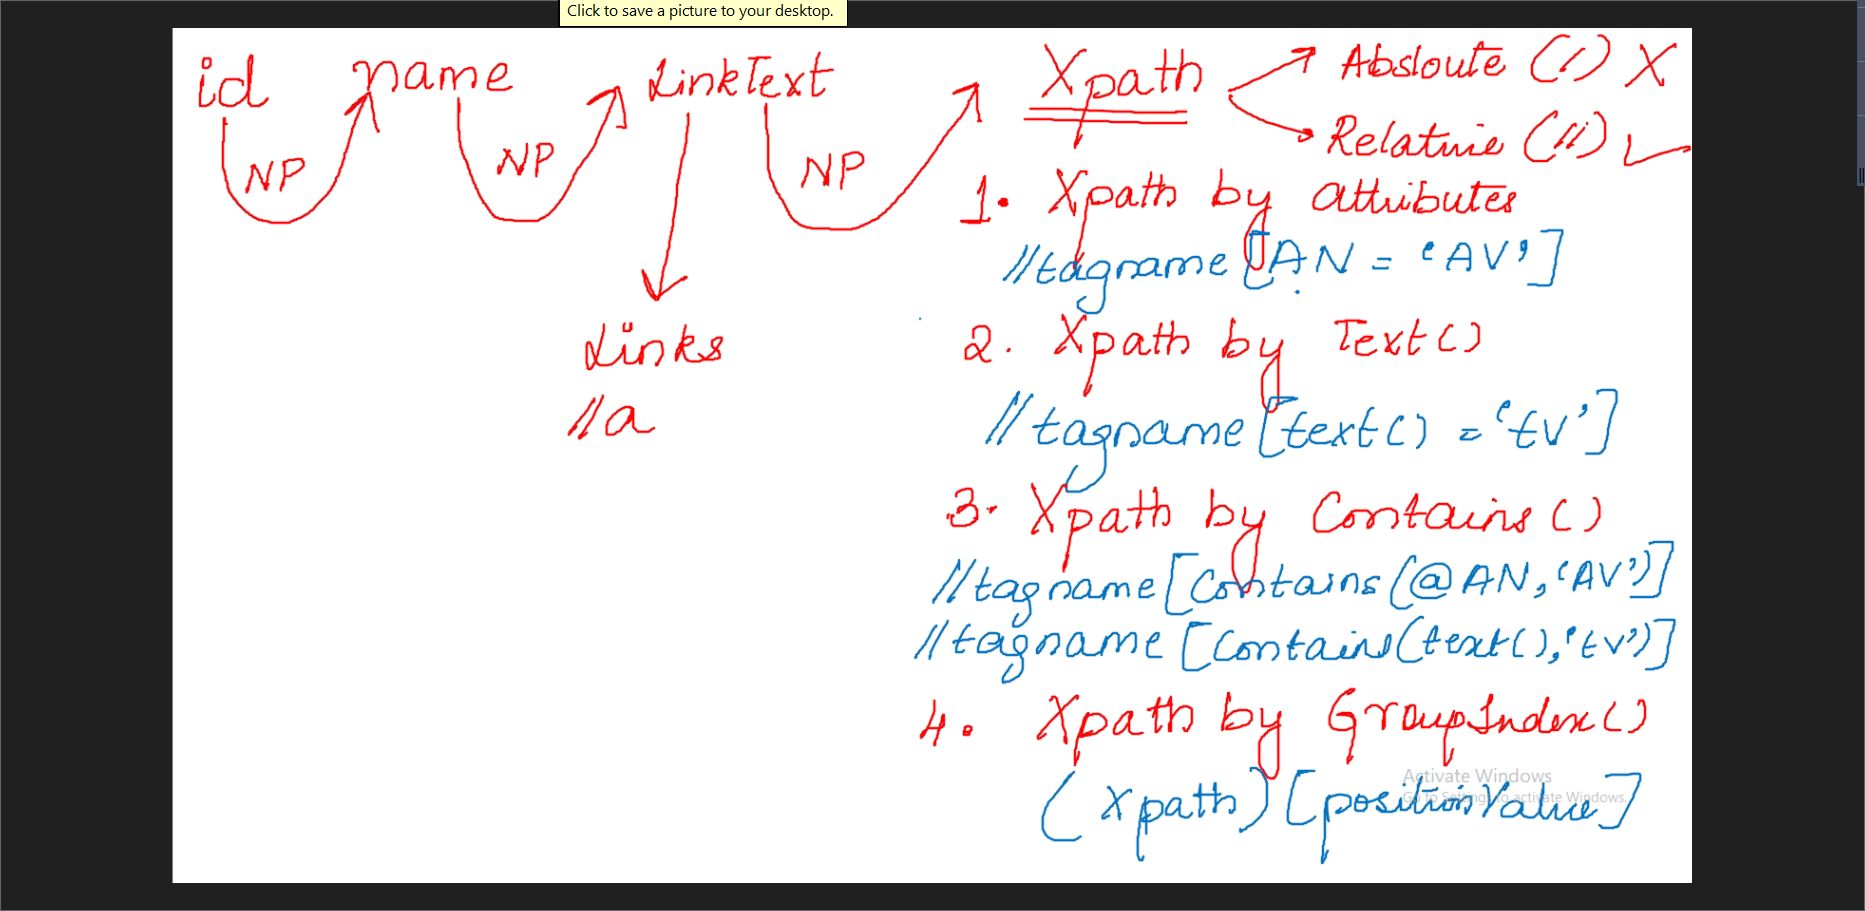 Click to save a picture to your desktop.
id name LinkText Xpath
Absloute (/) X
Relative (//) ✓
NP NP NP
1. Xpath by attributes
//tagname[AN = 'AV']
Links
//a
2. Xpath by Text()
//tagname[text() = 'tv']
3. Xpath by Contains()
//tagname[Contains(@AN,'AV')]
//tagname[Contains(text(),'tv')]
4. Xpath by GroupIndex()
(Xpath)[positionValue]
Activate Windows
Go to Settings to activate Windows.